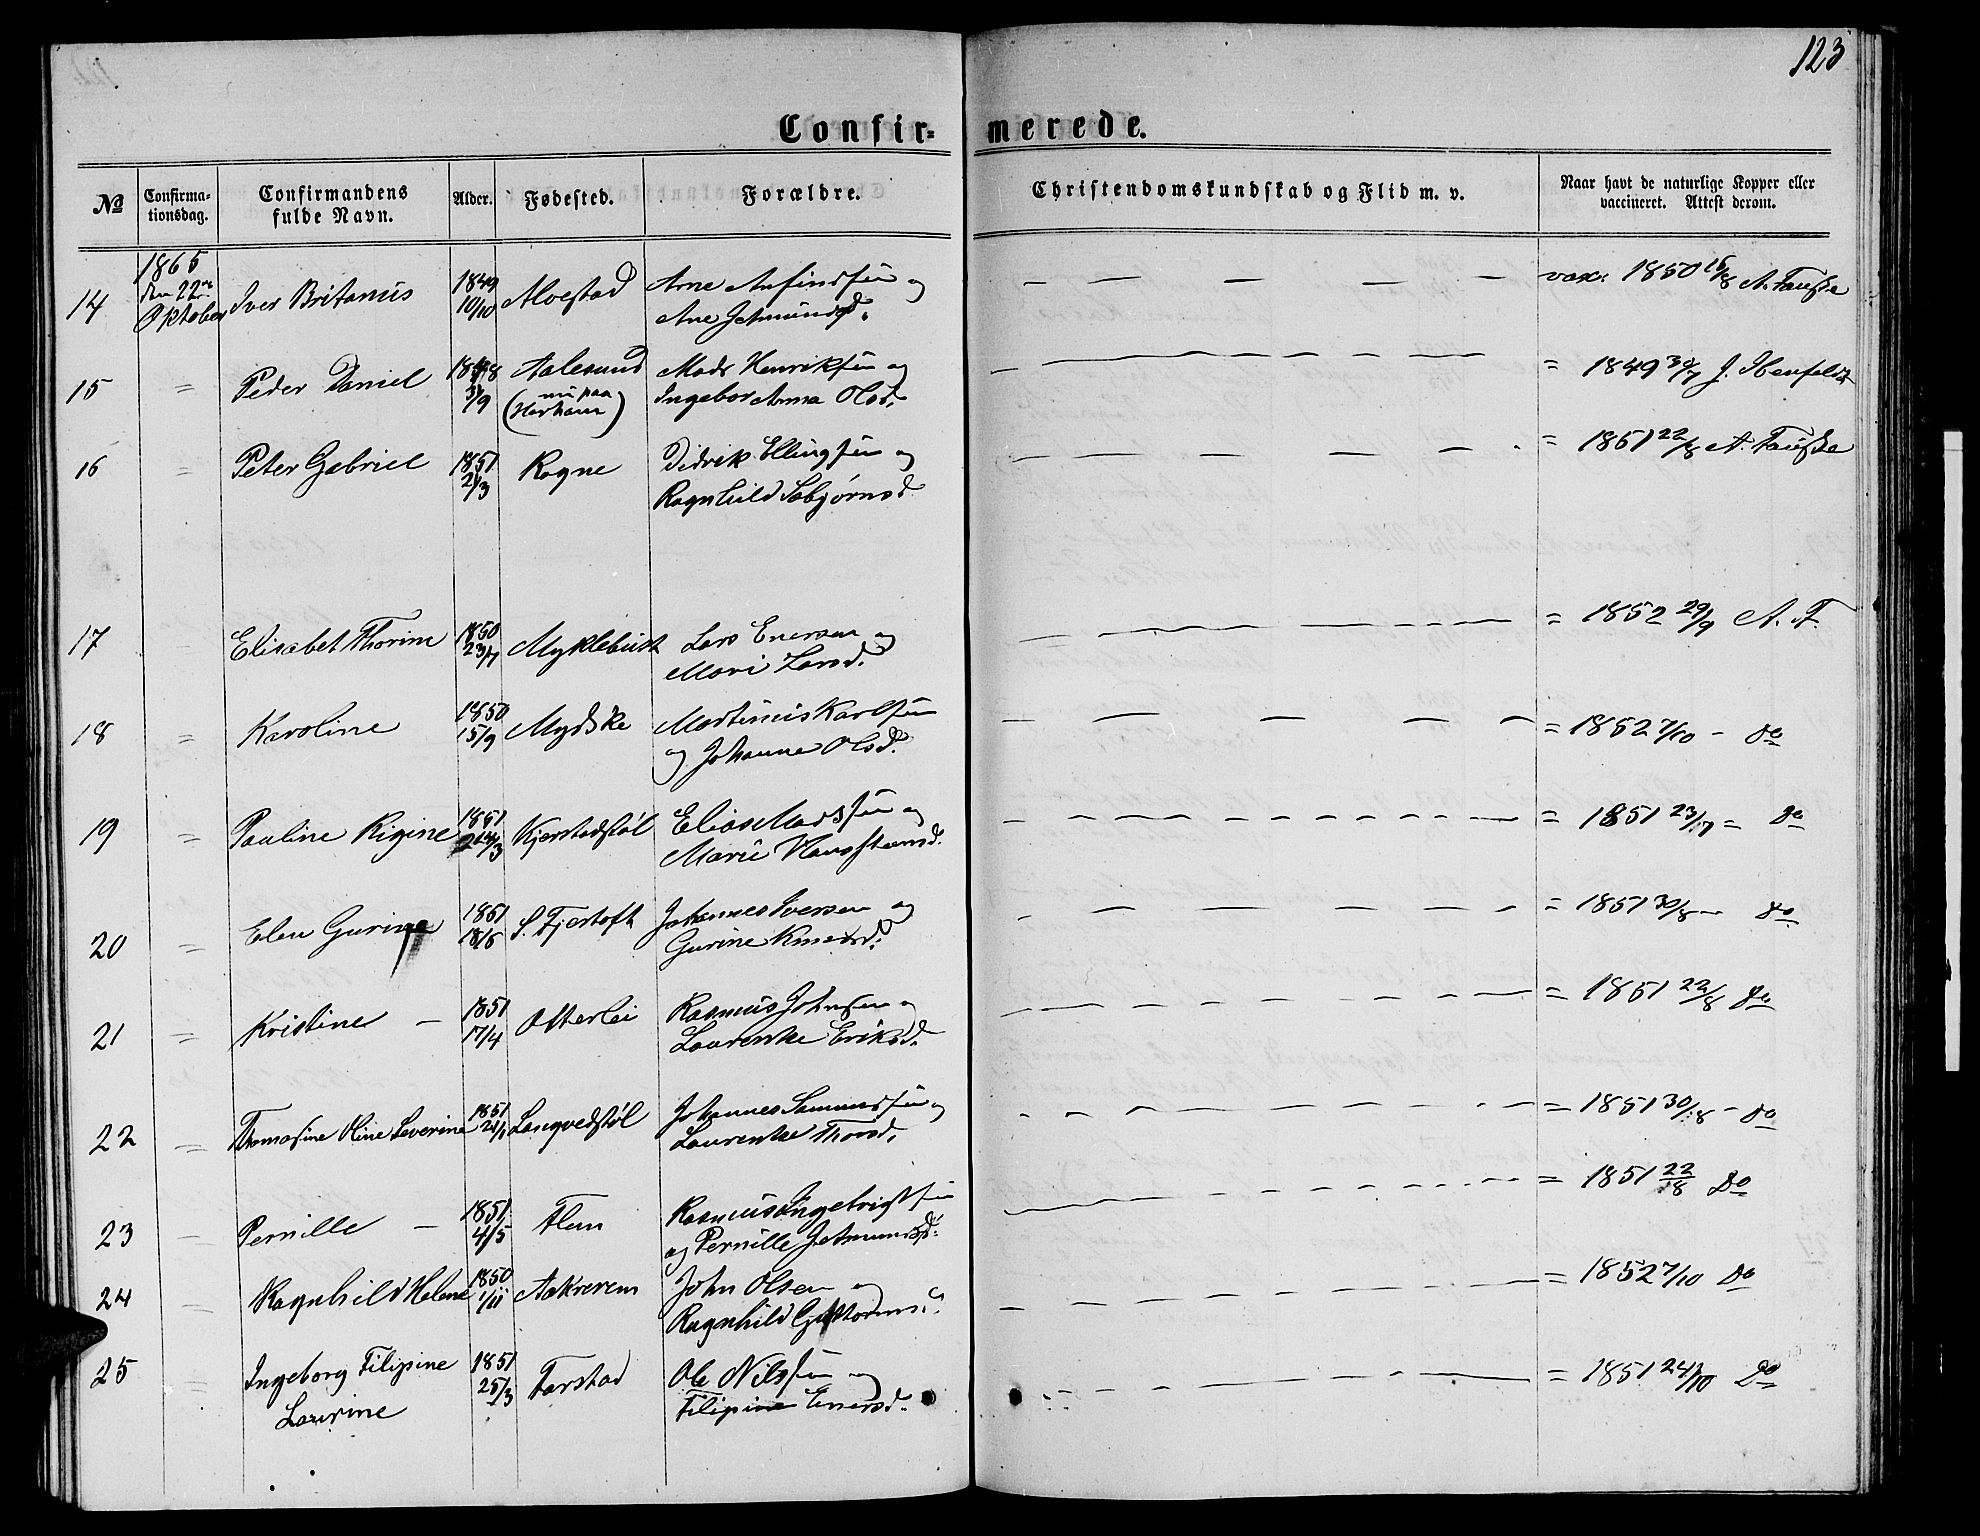 123
Confir- merede.
No Confirma-tionsdag. Confirmandens fulde Navn. Alder. Fødested. Forældre. Christendomskundskab og Flid m. v. Naar havt de naturlige Kopper eller vaccineret. Attest derom.
1865
14 den 22de Oktober Iver Britanus 1849 10/10 Alvestad Arne Anfindsen og vacc. 1850 A. Fauske
Ane Jetmundsd.
15 = Peder Daniel 1848 3/9 Aalesund (nu paa Harham) Mads Henriksen og = 1849 30/7
Ingebor Anna Olsd.
16 = Peter Gabriel 1851 2/3 Rogne Didrik Ellingsen og = 1851 22/8 A. Fauske
Ragnhild Sebjørnsd.
17 = Elisabet Thorine 1850 23/7 Myklebust Lars Enersen og = 1852 29/9 A. F.
Mari Larsd.
18 = Karoline 1850 15/9 Mydske Martinus Karlsen = 1852 7/10 - do
og Johanne Olsd.
19 = Pauline Rigine 1851 3 Kjerstadstøl Elias Madssen og = 1851 23/7 = do
Marie
20 Elen Gurine 1851 18/5 S. Fjærtoft Johannes Iversen og = 1851 30/8 - do
Gurine Knudsd.
21 = Kristine - 1851 17/4 Otterlei Rasmus Johnsen og = 1851 22/8 do
Laurentse Eriksd.
22 = Thomasine Oline Severine 1851 Longvedstøl Johannes Samundsen og = 1851 30/8 - do
Laurentse Thorsd.
23 - Pernille - 1851 4/5 Flem Rasmus Ingebrigtsen = 1851 22/8 Do
og Pernille Jetmundsd.
24 = Ragnhild Helene 1850 1/11 Aakrerem John Olsen og = 1852 7/10 Do
Ragnhild Guttormsd.
25 = Ingeborg Filipine 1851 25/3 Farstad Ole Nilssen og = 1851 24/10 Do
Laurine Filipine Enersd.